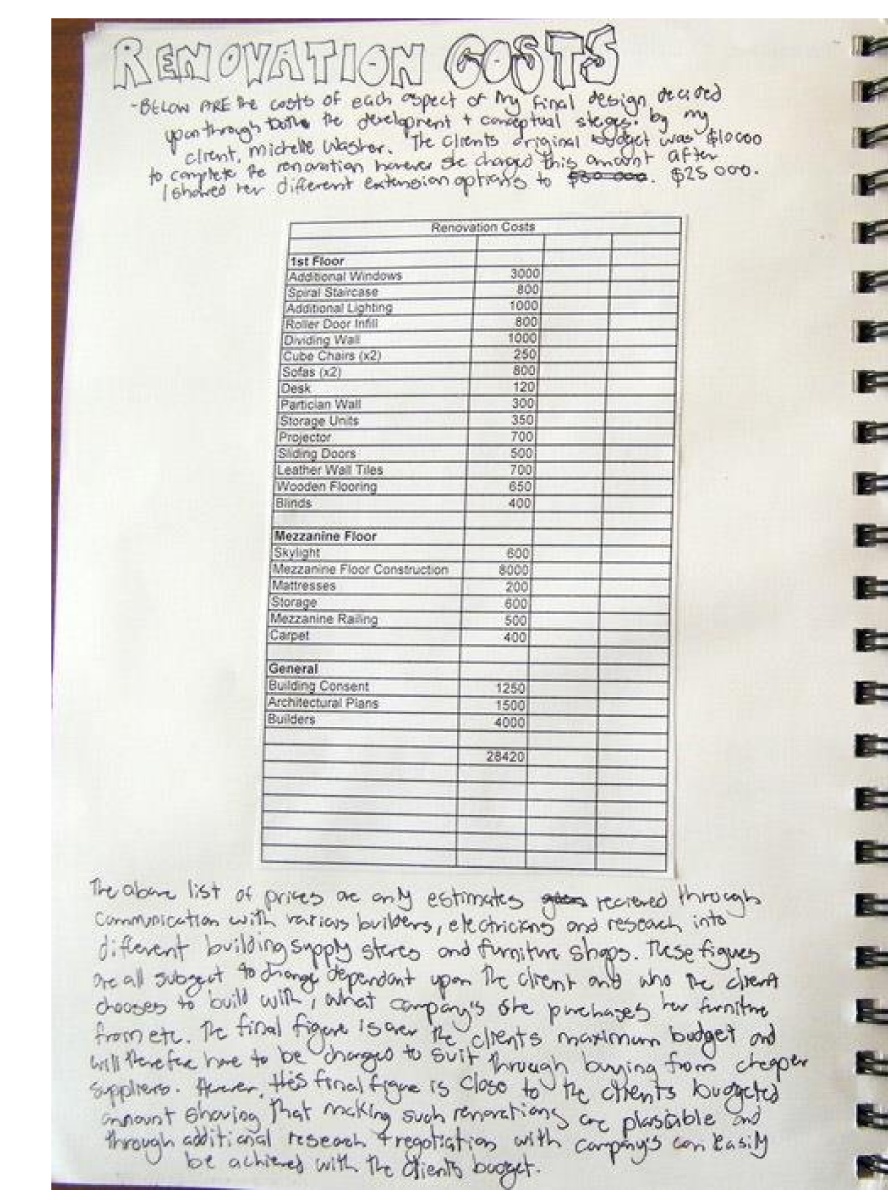 RENOVATION COSTS
-BELOW ARE the costs of each aspect of my final design decided
upon through both the development + conceptual stages. by my
client, Michelle Washer. The clients original budget was $10000
to complete the renovation however she changed this amount after
I showed her different extension options to $30 000. $25 000.
Renovation Costs
1st Floor
Additional Windows 3000
Spiral Staircase 800
Additional Lighting 1000
Roller Door Infill 800
Dividing Wall 1000
Cube Chairs (x2) 250
Sofas (x2) 800
Desk 120
Partician Wall 300
Storage Units 350
Projector 700
Sliding Doors 500
Leather Wall Tiles 700
Wooden Flooring 650
Blinds 400
Mezzanine Floor
Skylight 600
Mezzanine Floor Construction 8000
Mattresses 200
Storage 600
Mezzanine Railing 500
Carpet 400
General
Building Consent 1250
Architectural Plans 1500
Builders 4000
28420
The above list of prices are only estimates recieved through
communication with various builders, electricians and research into
different building supply stores and furniture shops. These figures
are all subject to change dependant upon the client and who the client
chooses to build with, what company's she purchases her furniture
from etc. The final figure is over the clients maximum budget and
will therefore have to be changed to suit through buying from cheaper
suppliers. However, this final figure is close to the clients budgeted
amount showing that making such renovations are plausible and
through additional research + negotiation with company's can easily
be achieved with the clients budget.